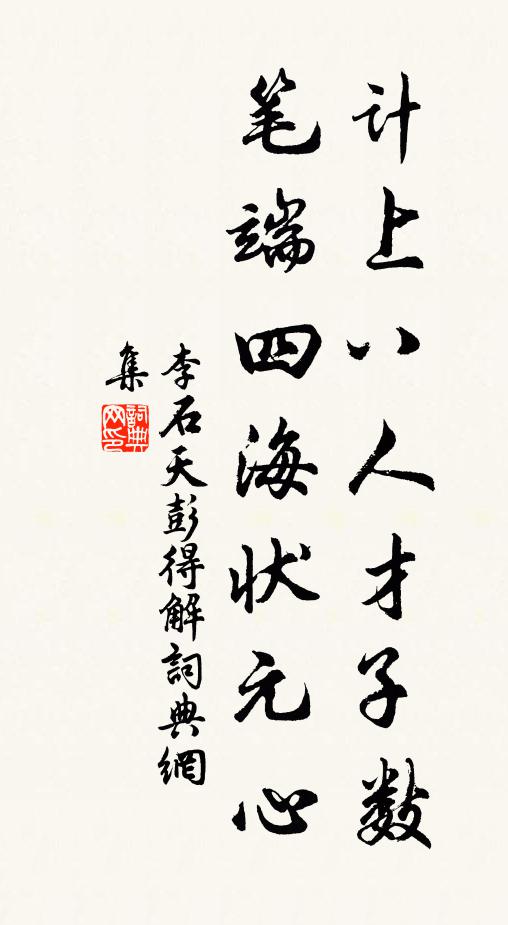 计上八人才子数
笔端四海状元心
李石天彭得解詞典網
集
詞典
网印